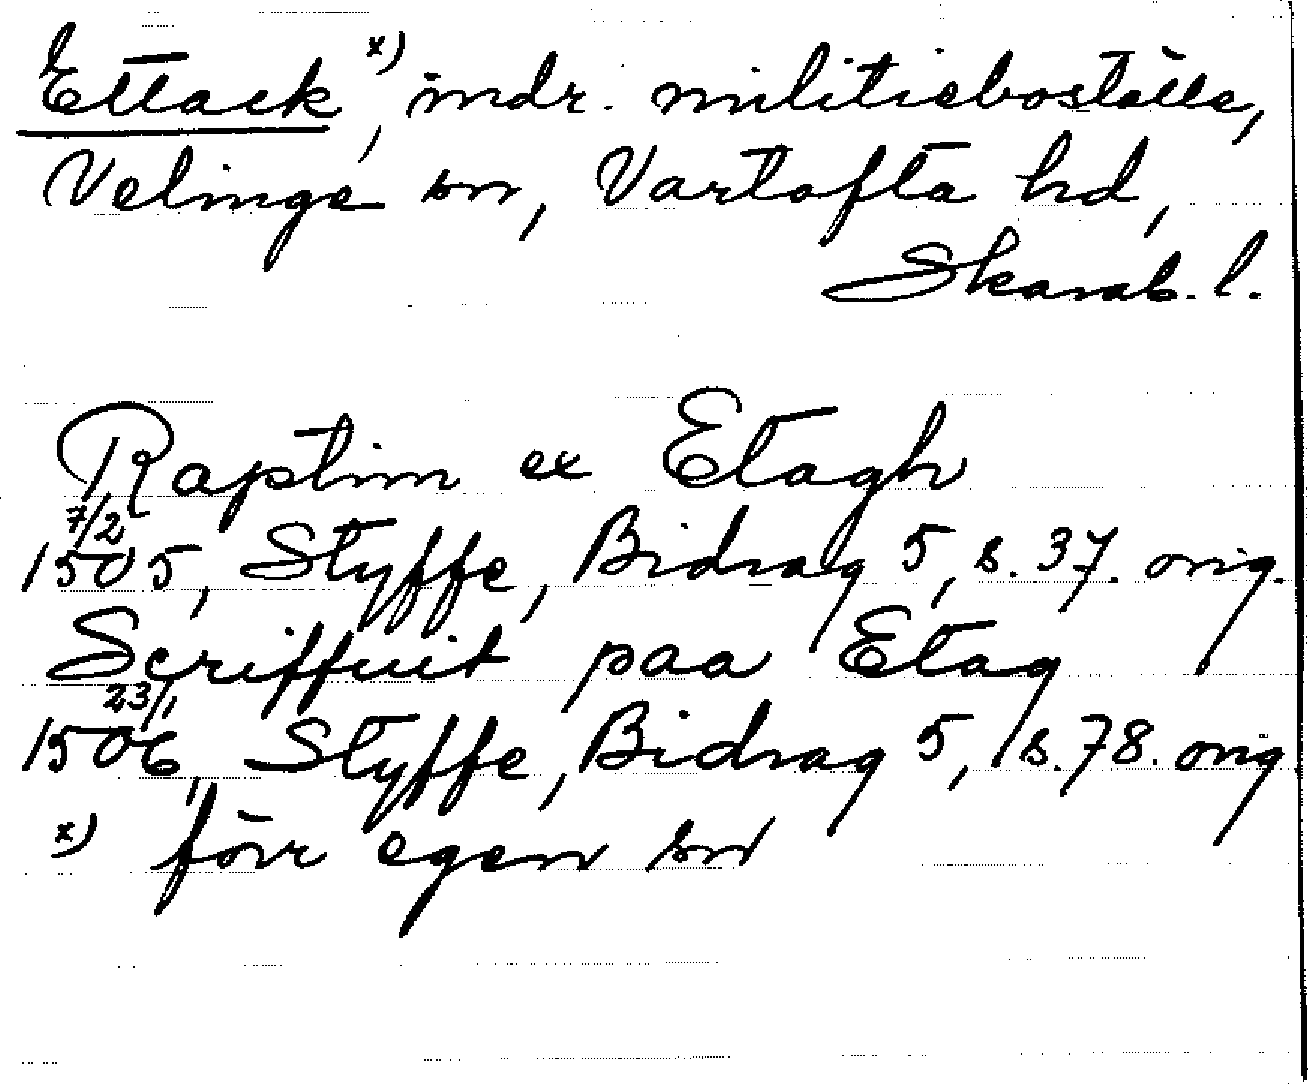 Ettack x), indr. militieboställe,
Velinge sn, Vartofta hd,
Skarab. l.
Raptim ex Etagh
7/2
1505, Styffe, Bidrag 5, s. 37. orig.
Scriffuit paa Etag
23/1
1506, Styffe, Bidrag 5, s. 78. orig
x) förr egen sn